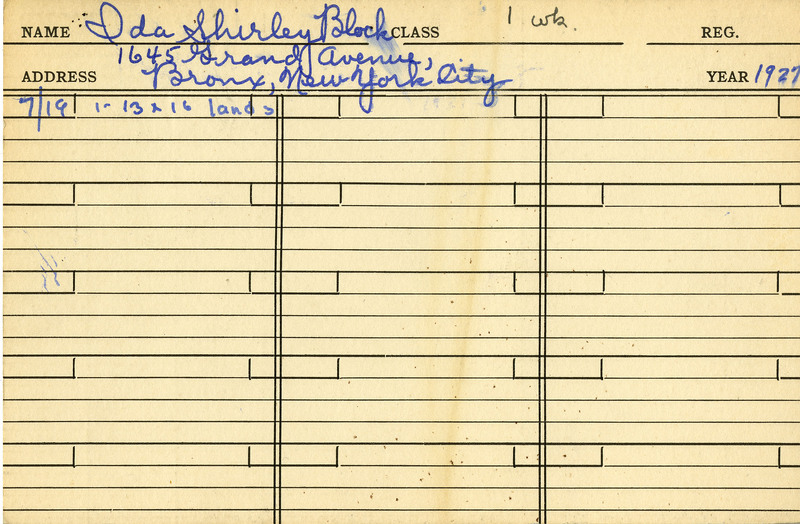 NAME Ida Shirley Block CLASS 1 wk. REG.
1645 Grand Avenue,
ADDRESS Bronx, New York City YEAR 1927
7/19 1-13 x 16 lands